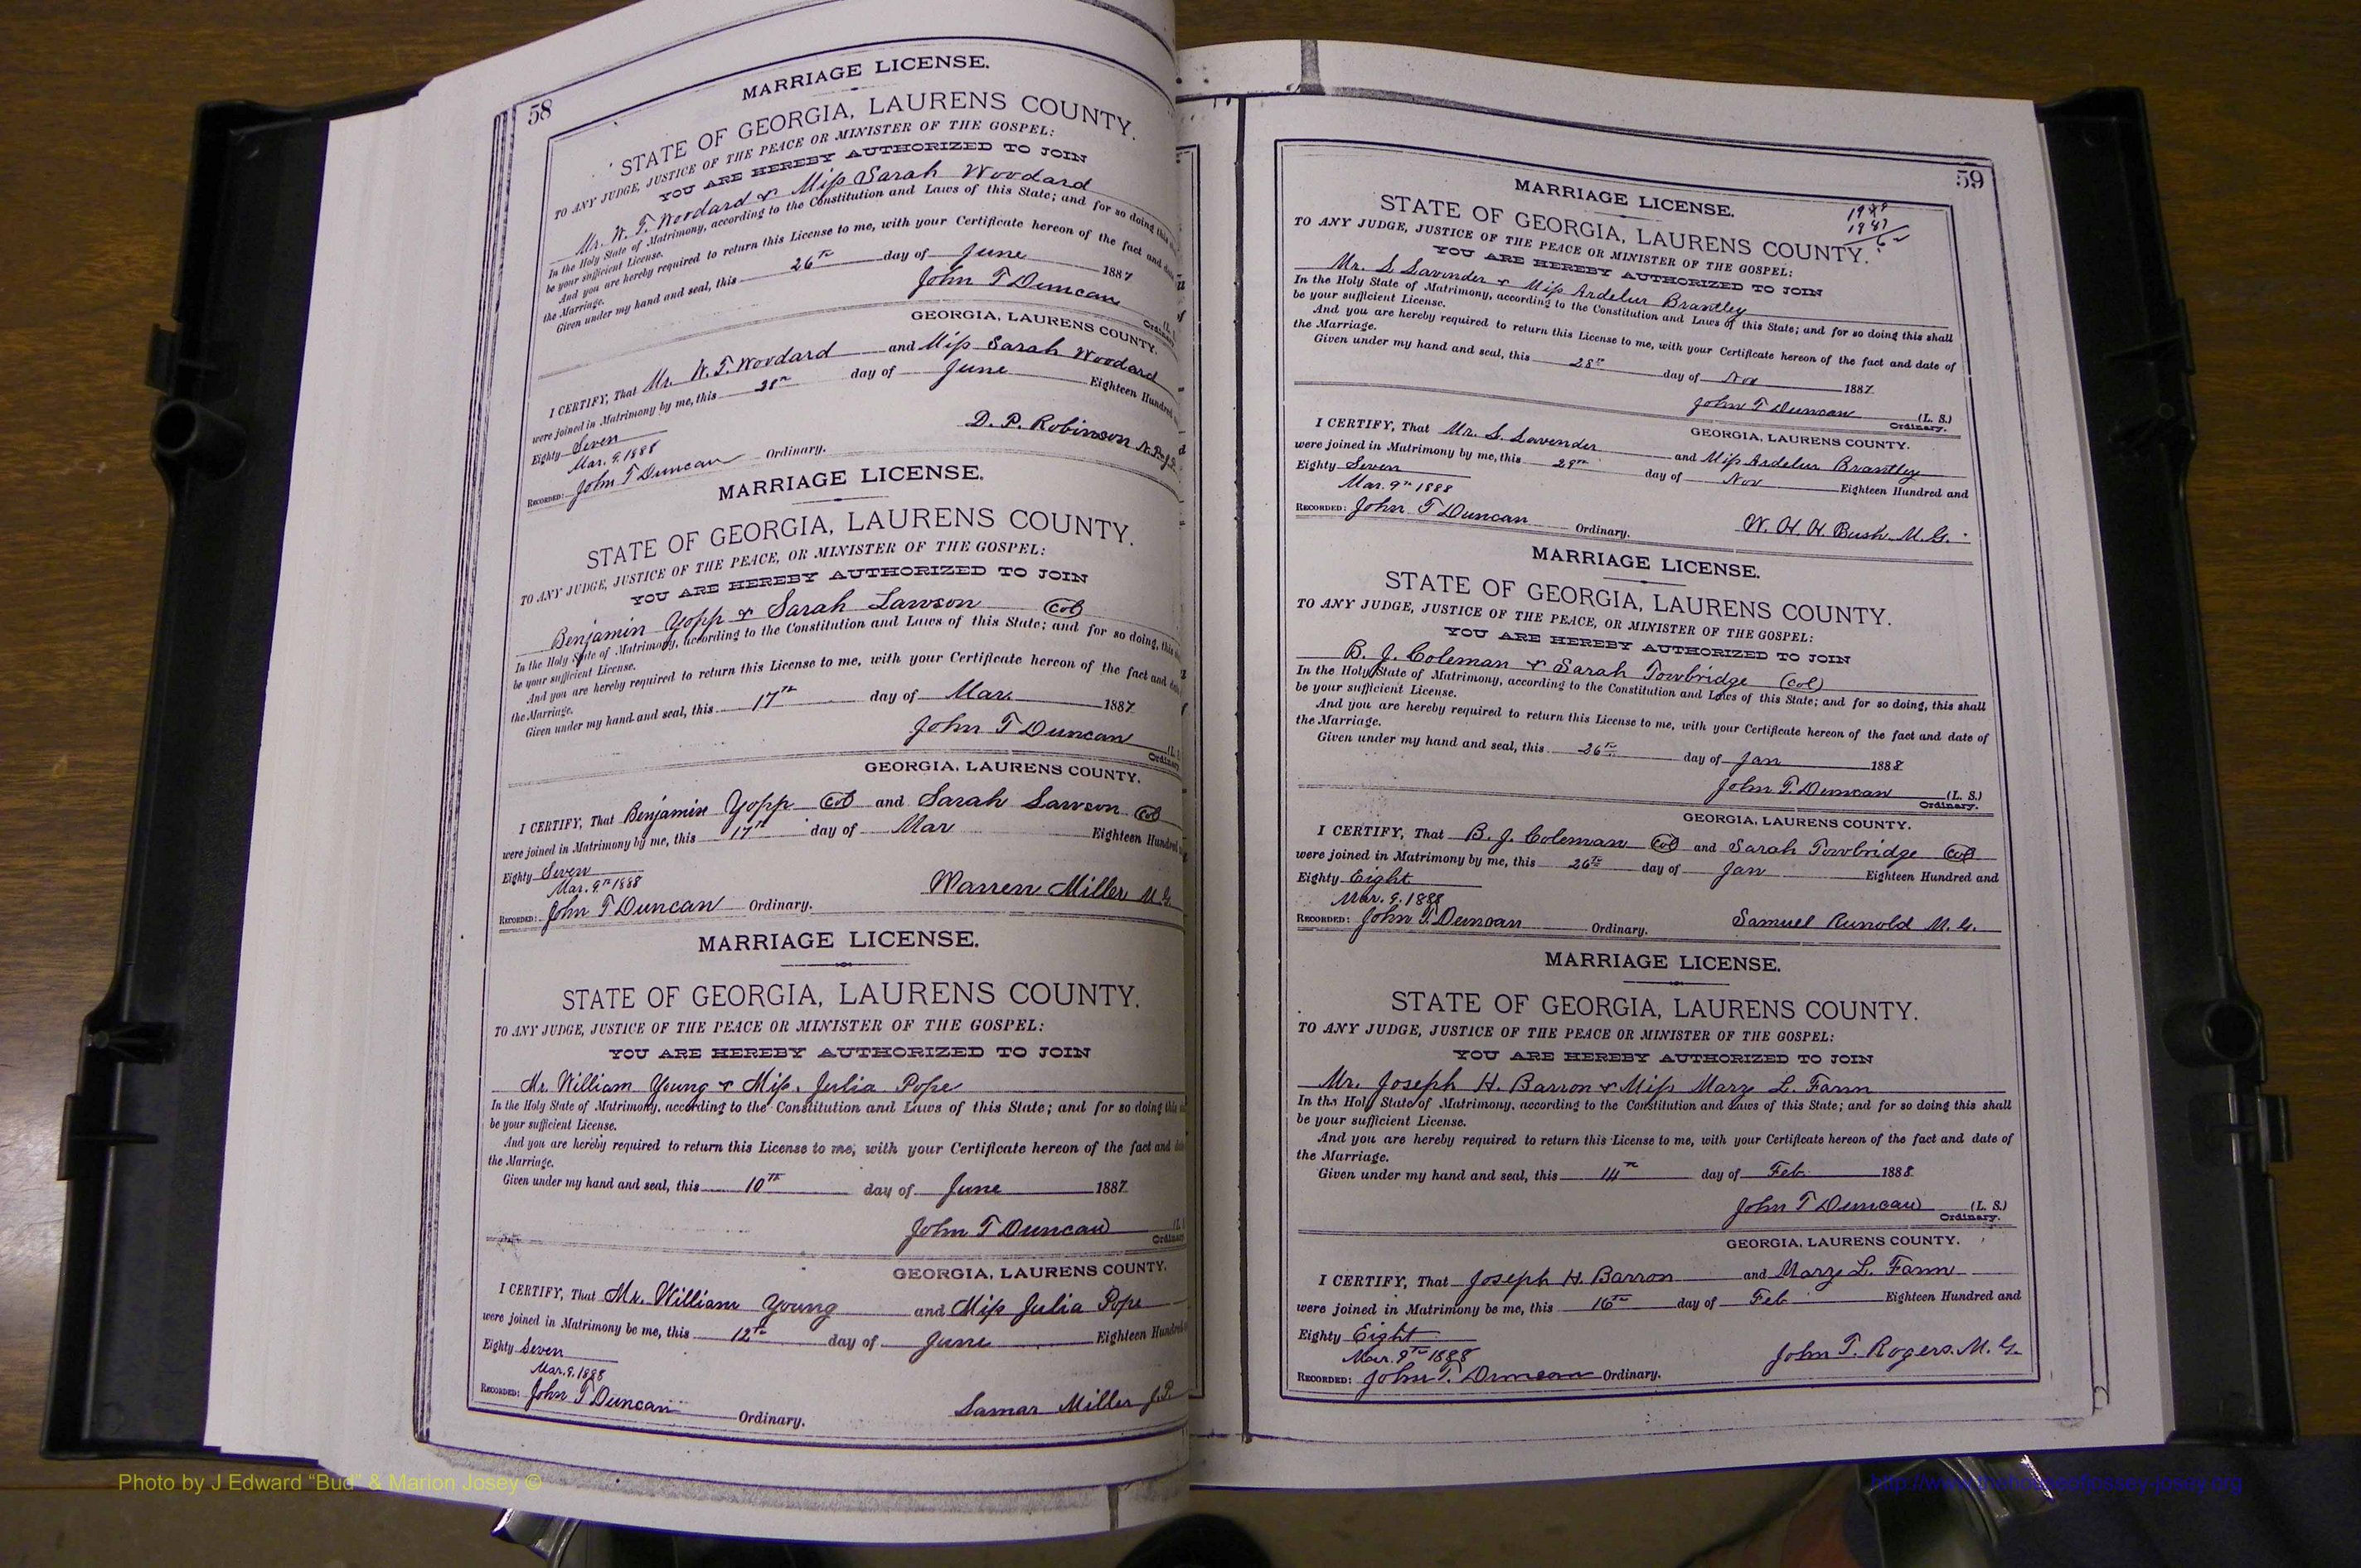 58
MARRIAGE LICENSE.
STATE OF GEORGIA, LAURENS COUNTY.
TO ANY JUDGE, JUSTICE OF THE PEACE OR MINISTER OF THE GOSPEL:
YOU ARE HEREBY AUTHORIZED TO JOIN
Mr. W. T. Woodard & Miss Sarah Woodard
In the Holy State of Matrimony, according to the Constitution and Laws of this State; and for so doing this
be your sufficient License.
And you are hereby required to return this License to me, with your Certificate hereon of the fact and
the Marriage.
Given under my hand and seal, this 26th day of June 1887
John T Duncan (L.
Ordinary
GEORGIA, LAURENS COUNTY.
I CERTIFY, That Mr. W. T. Woodard and Miss Sarah Woodard
were joined in Matrimony by me, this day of June Eighteen Hundred
Eighty Seven
Mar. 9. 1888 D. P. Robinson
RECORDED: John T Duncan Ordinary.
MARRIAGE LICENSE.
STATE OF GEORGIA, LAURENS COUNTY.
TO ANY JUDGE, JUSTICE OF THE PEACE, OR MINISTER OF THE GOSPEL:
YOU ARE HEREBY AUTHORIZED TO JOIN
Benjamin Yopp & Sarah Lawson (Col)
In the Holy State of Matrimony, according to the Constitution and Laws of this State; and for so doing, this
be your sufficient License.
And you are hereby required to return this License to me, with your Certificate hereon of the fact and
the Marriage.
Given under my hand and seal, this 17th day of Mar. 1887
John T Duncan (L.
Ordinary
GEORGIA, LAURENS COUNTY.
I CERTIFY, That Benjamin Yopp Col and Sarah Lawson Col
were joined in Matrimony by me, this 17th day of Mar Eighteen Hundred
Eighty Seven
Mar. 9th 1888 Warren Miller M.G.
RECORDED: John T Duncan Ordinary.
MARRIAGE LICENSE.
STATE OF GEORGIA, LAURENS COUNTY.
TO ANY JUDGE, JUSTICE OF THE PEACE OR MINISTER OF THE GOSPEL:
YOU ARE HEREBY AUTHORIZED TO JOIN
Mr. William Young & Miss. Julia Pope
In the Holy State of Matrimony, according to the Constitution and Laws of this State; and for so doing this
be your sufficient License.
And you are hereby required to return this License to me, with your Certificate hereon of the fact and
the Marriage.
Given under my hand and seal, this 10th day of June 1887
John T Duncan (L
Ordinary
GEORGIA, LAURENS COUNTY.
I CERTIFY, That Mr. William Young and Miss Julia Pope
were joined in Matrimony be me, this 12th day of June Eighteen Hundred
Eighty Seven
Mar. 9. 1888
RECORDED: John T Duncan Ordinary. Miller J.P.
59
MARRIAGE LICENSE.
STATE OF GEORGIA, LAURENS COUNTY.
TO ANY JUDGE, JUSTICE OF THE PEACE OR MINISTER OF THE GOSPEL:
YOU ARE HEREBY AUTHORIZED TO JOIN
Mr. S. Lavender & Miss Ardelur Brantley
In the Holy State of Matrimony, according to the Constitution and Laws of this State; and for so doing this shall
be your sufficient License.
And you are hereby required to return this License to me, with your Certificate hereon of the fact and date of
the Marriage.
Given under my hand and seal, this 28th day of Nov 1887
John T Duncan (L. S.)
Ordinary.
GEORGIA, LAURENS COUNTY.
I CERTIFY, That Mr. S. Lavender and Miss Ardelur Brantley
were joined in Matrimony by me, this 29th day of Nov Eighteen Hundred and
Eighty Seven
Mar. 9th 1888
RECORDED: John T Duncan Ordinary. W. H. H. Bush. M.G.
MARRIAGE LICENSE.
STATE OF GEORGIA, LAURENS COUNTY.
TO ANY JUDGE, JUSTICE OF THE PEACE, OR MINISTER OF THE GOSPEL:
YOU ARE HEREBY AUTHORIZED TO JOIN
B. J. Coleman & Sarah Towbridge (Col)
In the Holy State of Matrimony, according to the Constitution and Laws of this State; and for so doing, this shall
be your sufficient License.
And you are hereby required to return this License to me, with your Certificate hereon of the fact and date of
the Marriage.
Given under my hand and seal, this 26th day of Jan 1888
John T. Duncan (L. S.)
Ordinary.
GEORGIA, LAURENS COUNTY.
I CERTIFY, That B. J. Coleman Col and Sarah Towbridge Col
were joined in Matrimony by me, this 26th day of Jan Eighteen Hundred and
Eighty Eight
Mar. 9. 1888
RECORDED: John T. Duncan Ordinary. Samuel Runold M.G.
MARRIAGE LICENSE.
STATE OF GEORGIA, LAURENS COUNTY.
TO ANY JUDGE, JUSTICE OF THE PEACE OR MINISTER OF THE GOSPEL:
YOU ARE HEREBY AUTHORIZED TO JOIN
Mr. Joseph H. Barron & Miss Marze L. Farm
In the Holy State of Matrimony, according to the Constitution and Laws of this State; and for so doing this shall
be your sufficient License.
And you are hereby required to return this License to me, with your Certificate hereon of the fact and date of
the Marriage.
Given under my hand and seal, this 14th day of Feb. 1888
John T Duncan (L. S.)
Ordinary.
GEORGIA, LAURENS COUNTY.
I CERTIFY, That Joseph H. Barron and Marze L. Farm
were joined in Matrimony be me, this 16th day of Feb Eighteen Hundred and
Eighty Eight
Mar. 9th 1888 John T. Rogers. M.G.
RECORDED: John T. Duncan Ordinary.
Photo by J Edward “Bud” & Marion Josey ©